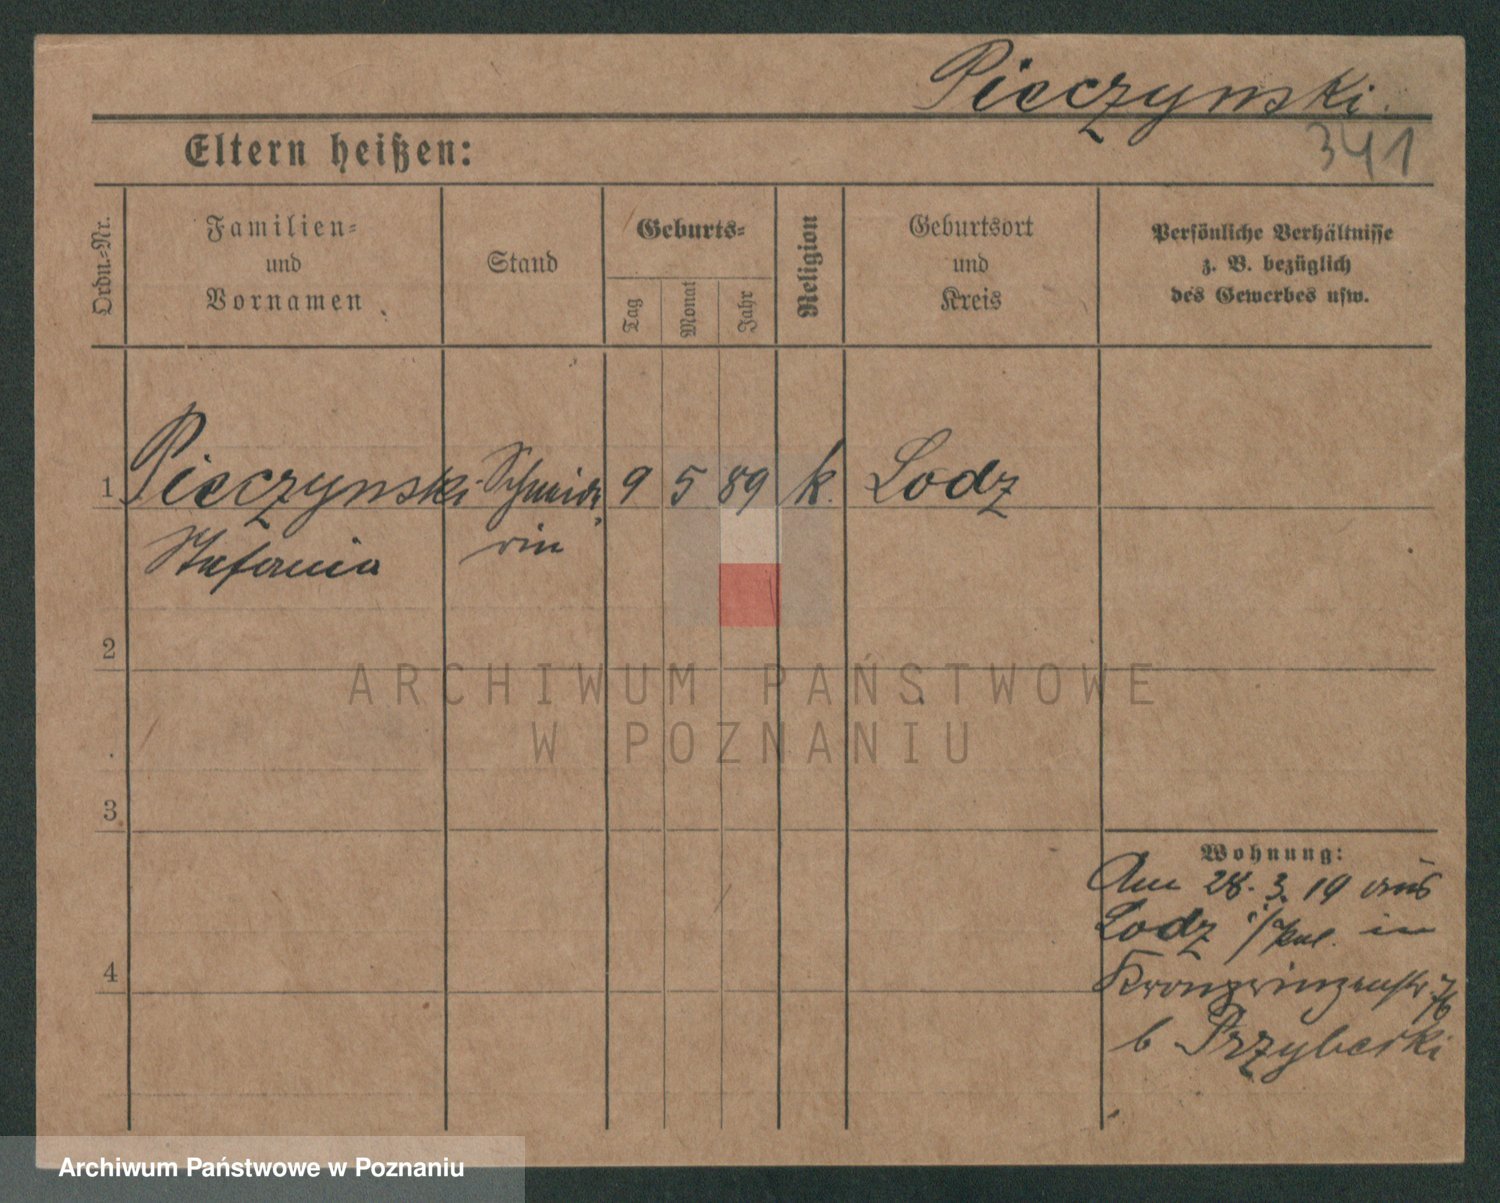 Pieczynski.
341
Eltern heißen:
Ordn.-Nr.
Familien-
und
Vornamen
Stand
Geburts-
Tag
Monat
Jahr
Religion
Geburtsort
und
Kreis
Persönliche Verhältnisse
z. B. bezüglich
des Gewerbes usw.
1 Pieczynski Schneide- 9 5 89 k. Lodz
Stefania rin
2
ARCHIWUM PAŃSTWOWE
W POZNANIU
3
Wohnung:
Am 28. 3. 19 aus
Lodz in
4
Kronprinzenstr.
b Przybecki
Archiwum Państwowe w Poznaniu